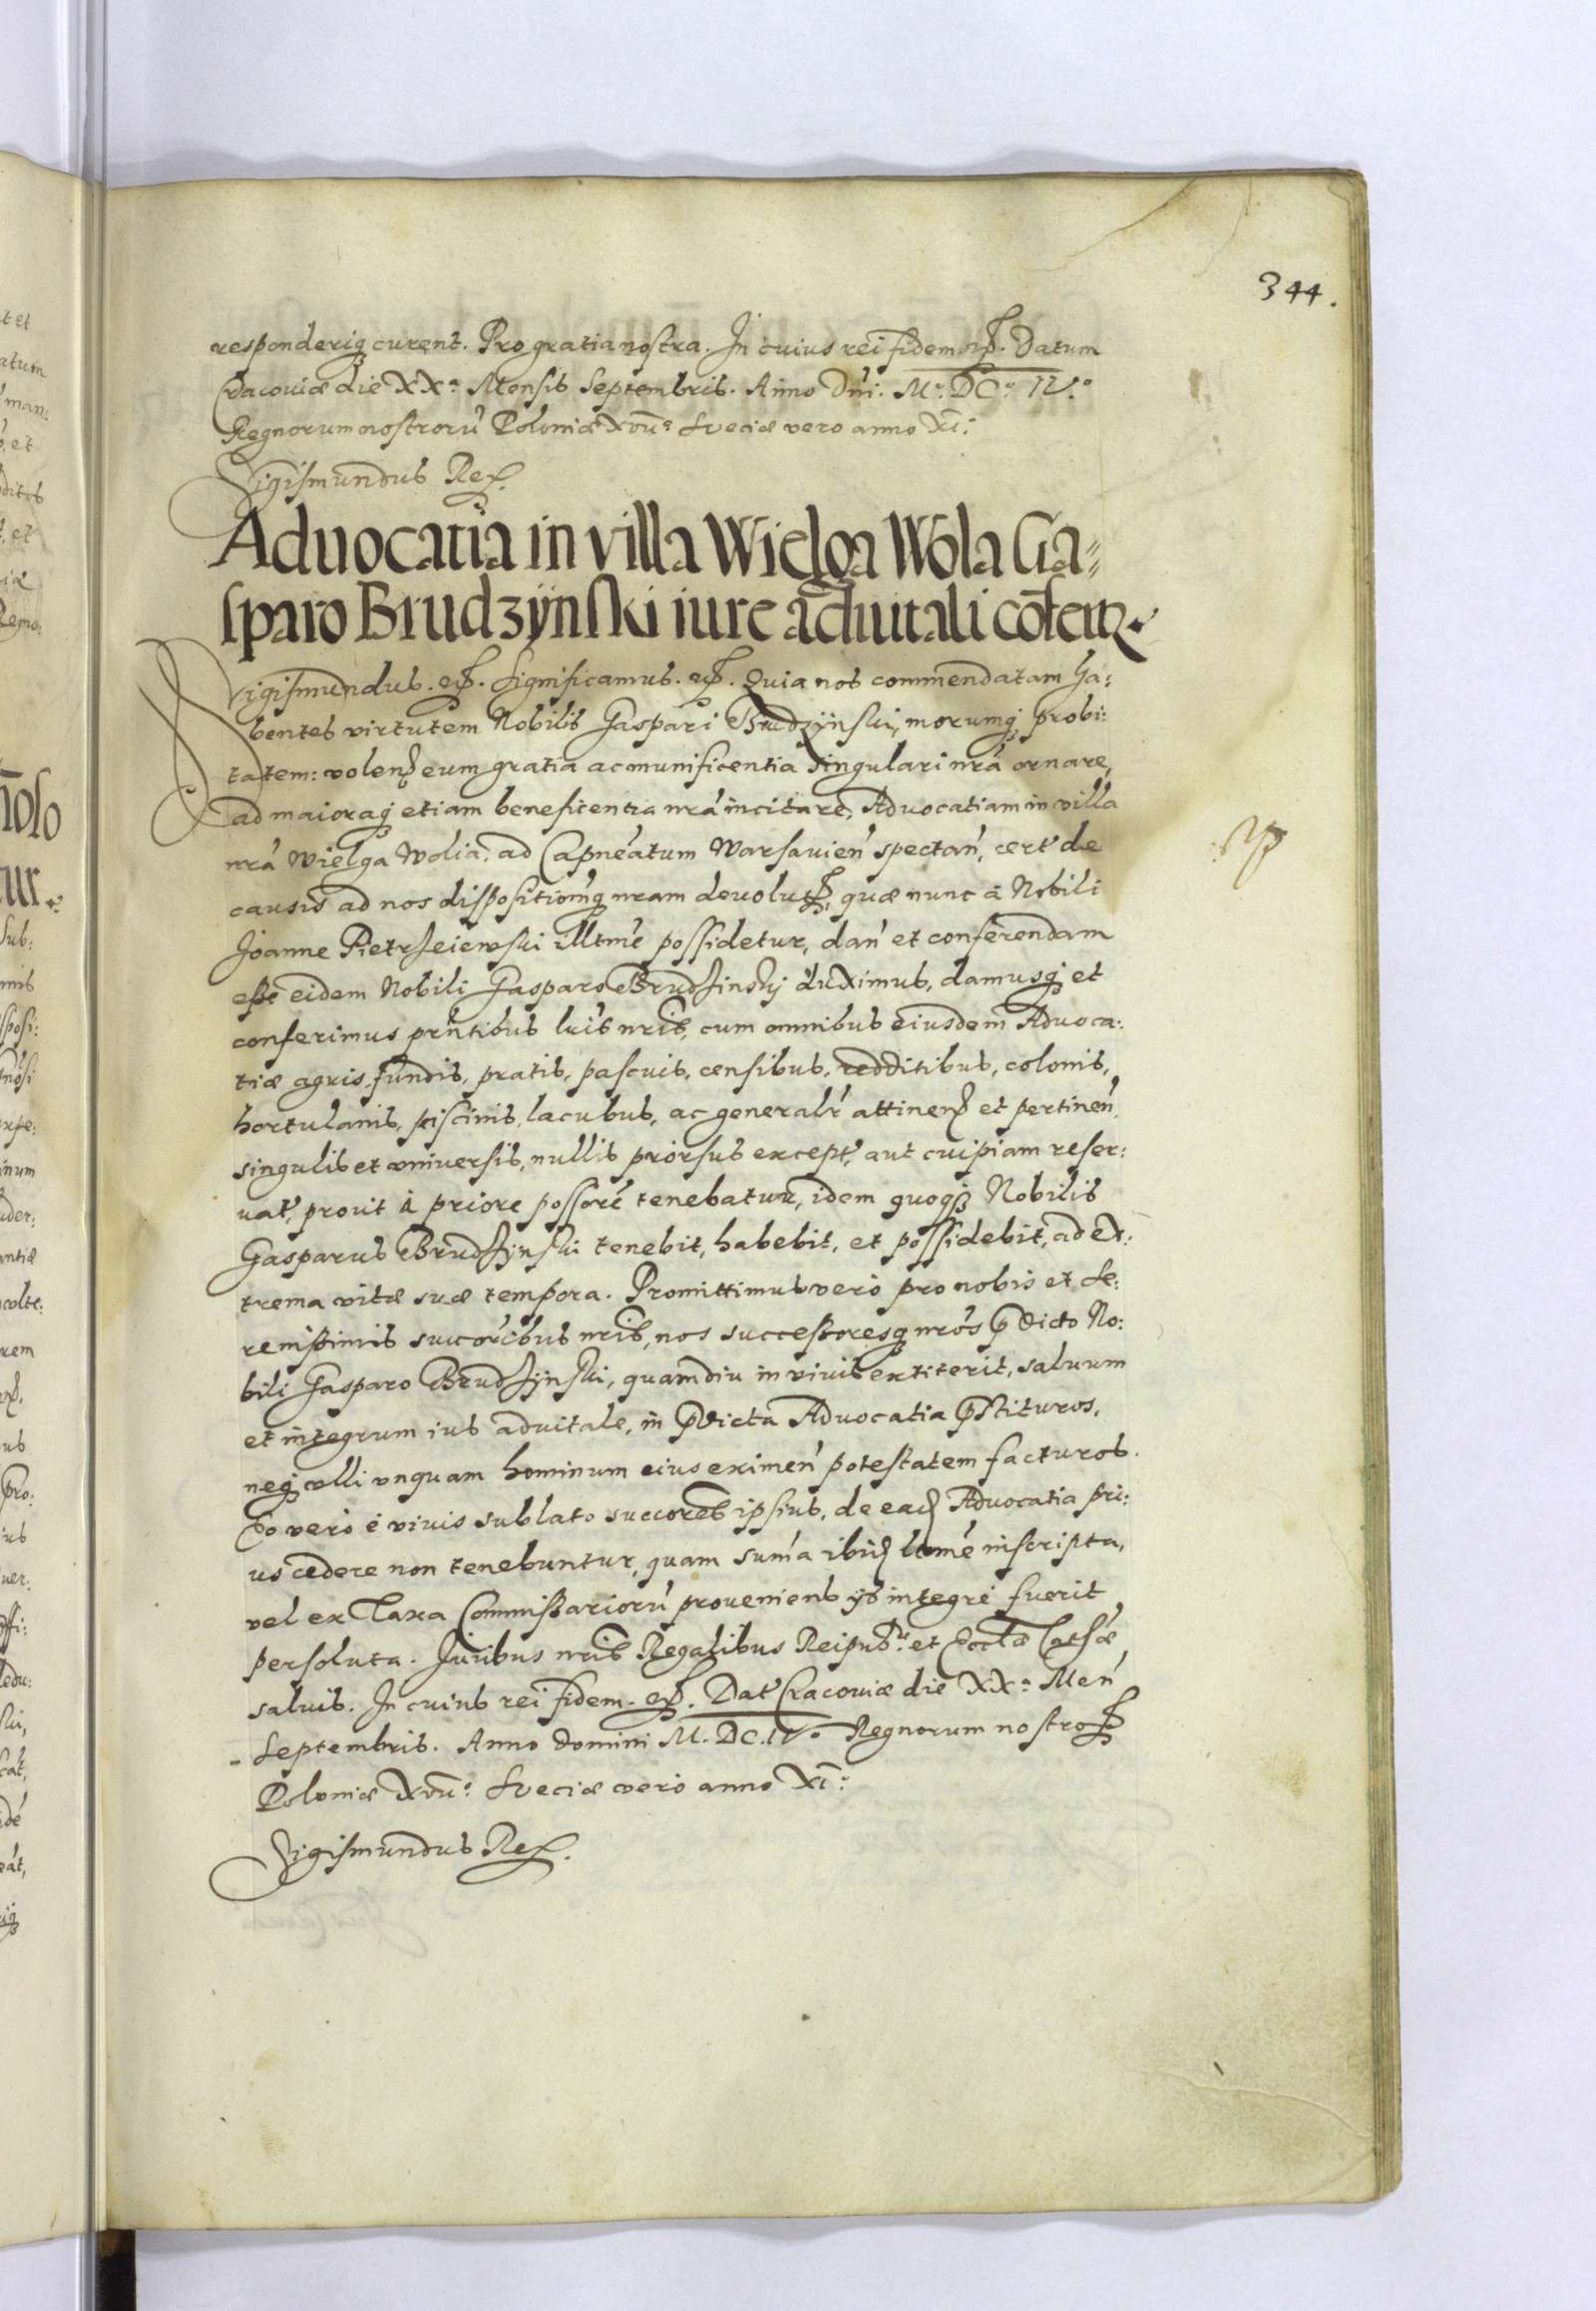 344.
responderiq; curent. Pro gratia nostra. In cuius rei fidem etc. Datum
Cracoviæ die XXa Mensis Septembris. Anno Dńi. Mo. DCo. IVo
Regnorum nostrorū Poloniæ XVIIo Sveciæ vero anno XIo
Sigismundus Rex.
Aduocatia in villa Wielga Wola Ga=
sparo Brudzÿnski iure aduitali cōfertur.
Sigismundus. etc. Significamus. etc. Quia nos commendatam ha:
bentes virtutem Nobilis Gaspari Brudzÿnski, morumq; probi:
tatem: volen̄ eum gratia ac munificentia singulari nrā ornare,
ad maioraq; etiam beneficentia nrā incitare, Aduocatiam in villa
nrā Wielga Wolia, ad Capneātum Warsauień spectań, cert' de
causis ad nos dispositionq; nram deuolut, quæ nunc à Nobili
Joanne Pietrzeiewski illtme possidetur, dań et conferendam
esse eidem Nobili Gasparo Brudzinskij duximus, damusq; et
conferimus prñtibus lris nris, cum omnibus eiusdem Aduoca:
tiæ agris, fundis, pratis, pascuis, censibus, redditibus, colonis,
hortulanis, piscinis, lacubus, ac generalr attinen et pertineń
singulis et vniuersis, nullis prorsus except', aut cuipiam reser:
uat', prout à priore possore tenebatur, idem quoq; Nobilis
Gasparus Brudzÿnski tenebit, habebit, et possidebit, ad ex:
trema vitæ suæ tempora. Promittimus vero pro nobis et Se:
renissimis succoribus nris, nos successoresq; nros p̄dicto No:
bili Gasparo Brudzÿnski, quamdiu in viuis extiterit, saluum
et integrum ius aduitale, in p̄dicta Aduocatia p̄stituros,
neq; vlli vnquam hominum eius eximeń potestatem facturos.
Eo vero è viuis sublato succores ipsius, de ead Aduocatia pri:
us cedere non tenebuntur, quam sum̄a ibid ltme inscripta,
vel ex Taxa Commissariorū proueniens ijs integrè fuerit
persoluta. Juribus nris Regalibus Reipub: et Ecclæ Catħæ
saluis. In cuius rei fidem. etc. Dat' Cracoviæ die XXa Meń
Septembris. Anno Domini M. DC. IVo Regnorum nostror
Poloniæ XVIIo Sveciæ vero anno XIo
Sigismundus Rex.